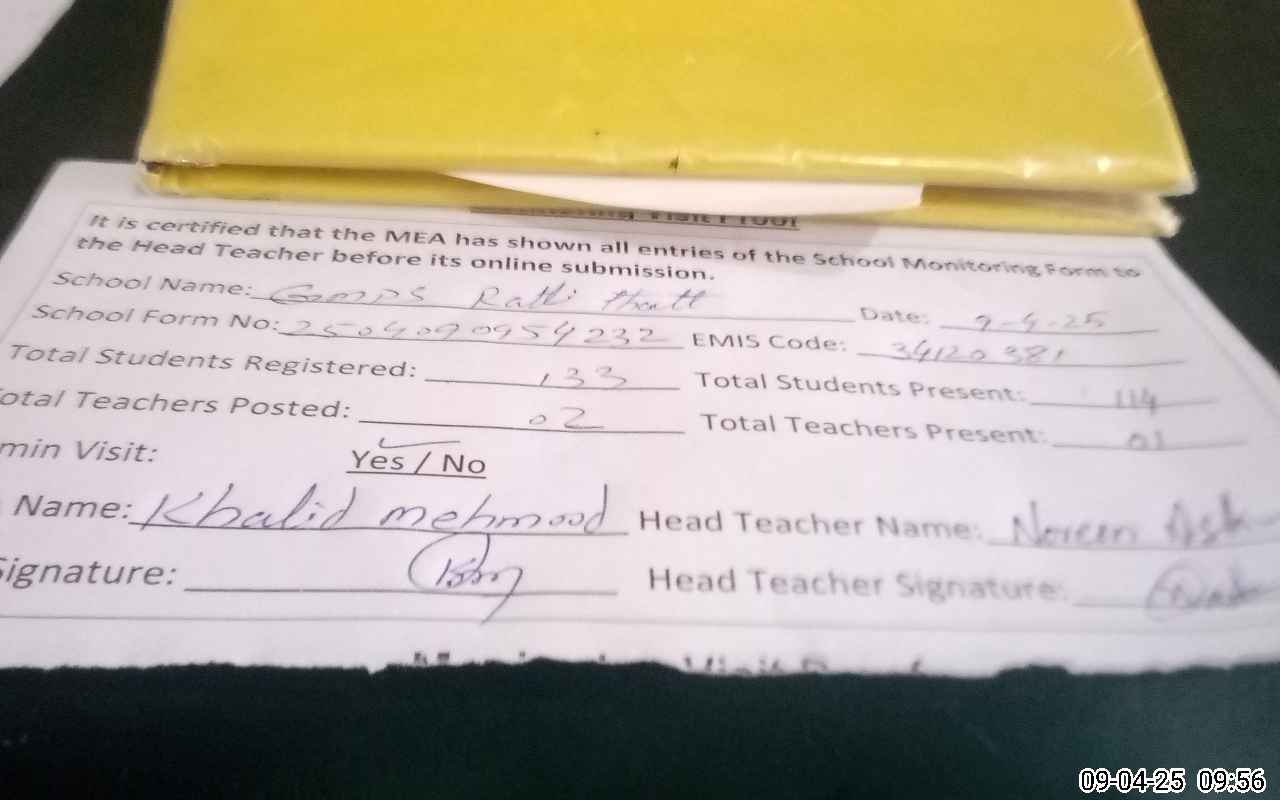 Monitoring Visit Proof
It is certified that the MEA has shown all entries of the School Monitoring Form to
the Head Teacher before its online submission.
School Name: GMPS Ratti Thatt Date: 9-4-25
School Form No: 2504090954232 EMIS Code: 34120381
Total Students Registered: 133 Total Students Present: 114
otal Teachers Posted: 02 Total Teachers Present: 01
min Visit: Yes / No
Name: Khalid mehmood Head Teacher Name: Noreen
ignature: Head Teacher Signature:
09-04-25 09:56